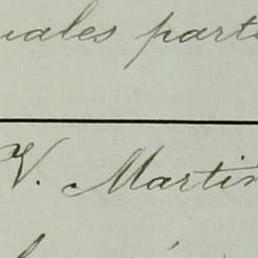 uales part
V. Martin